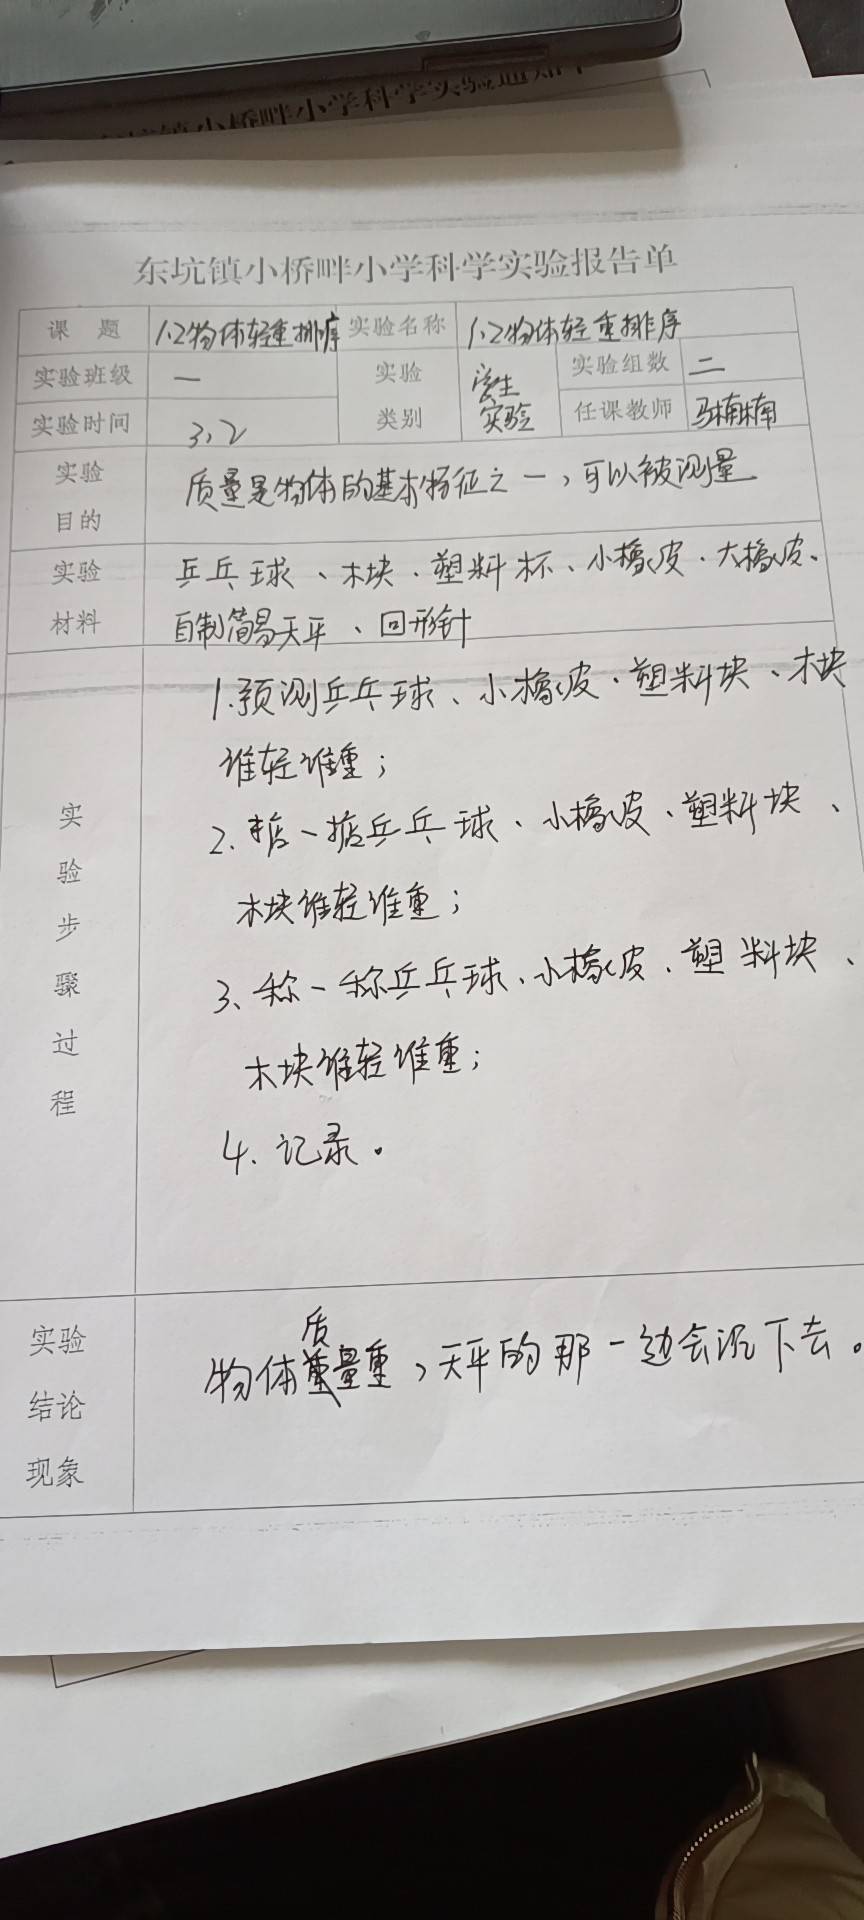 东坑镇小桥畔小学科学实验通知单
东坑镇小桥畔小学科学实验报告单
课 题 1.2物体轻重排序 实验名称 1.2物体轻重排序
实验班级 一 实验类别 学生实验 实验组数 二
实验时间 3.2 任课教师 马楠楠
实验目的 质量是物体的基本特征之一,可以被测量
实验材料 乒乓球、木块、塑料杯、小橡皮、大橡皮、
自制简易天平、回形针
实验步骤过程
1.预测乒乓球、小橡皮、塑料块、木块
谁轻谁重;
2.掂一掂乒乓球、小橡皮、塑料块、
木块谁轻谁重;
3、称一称乒乓球、小橡皮、塑料块、
木块谁轻谁重;
4.记录。
实验结论现象
物体质量重,天平的那一边会沉下去。